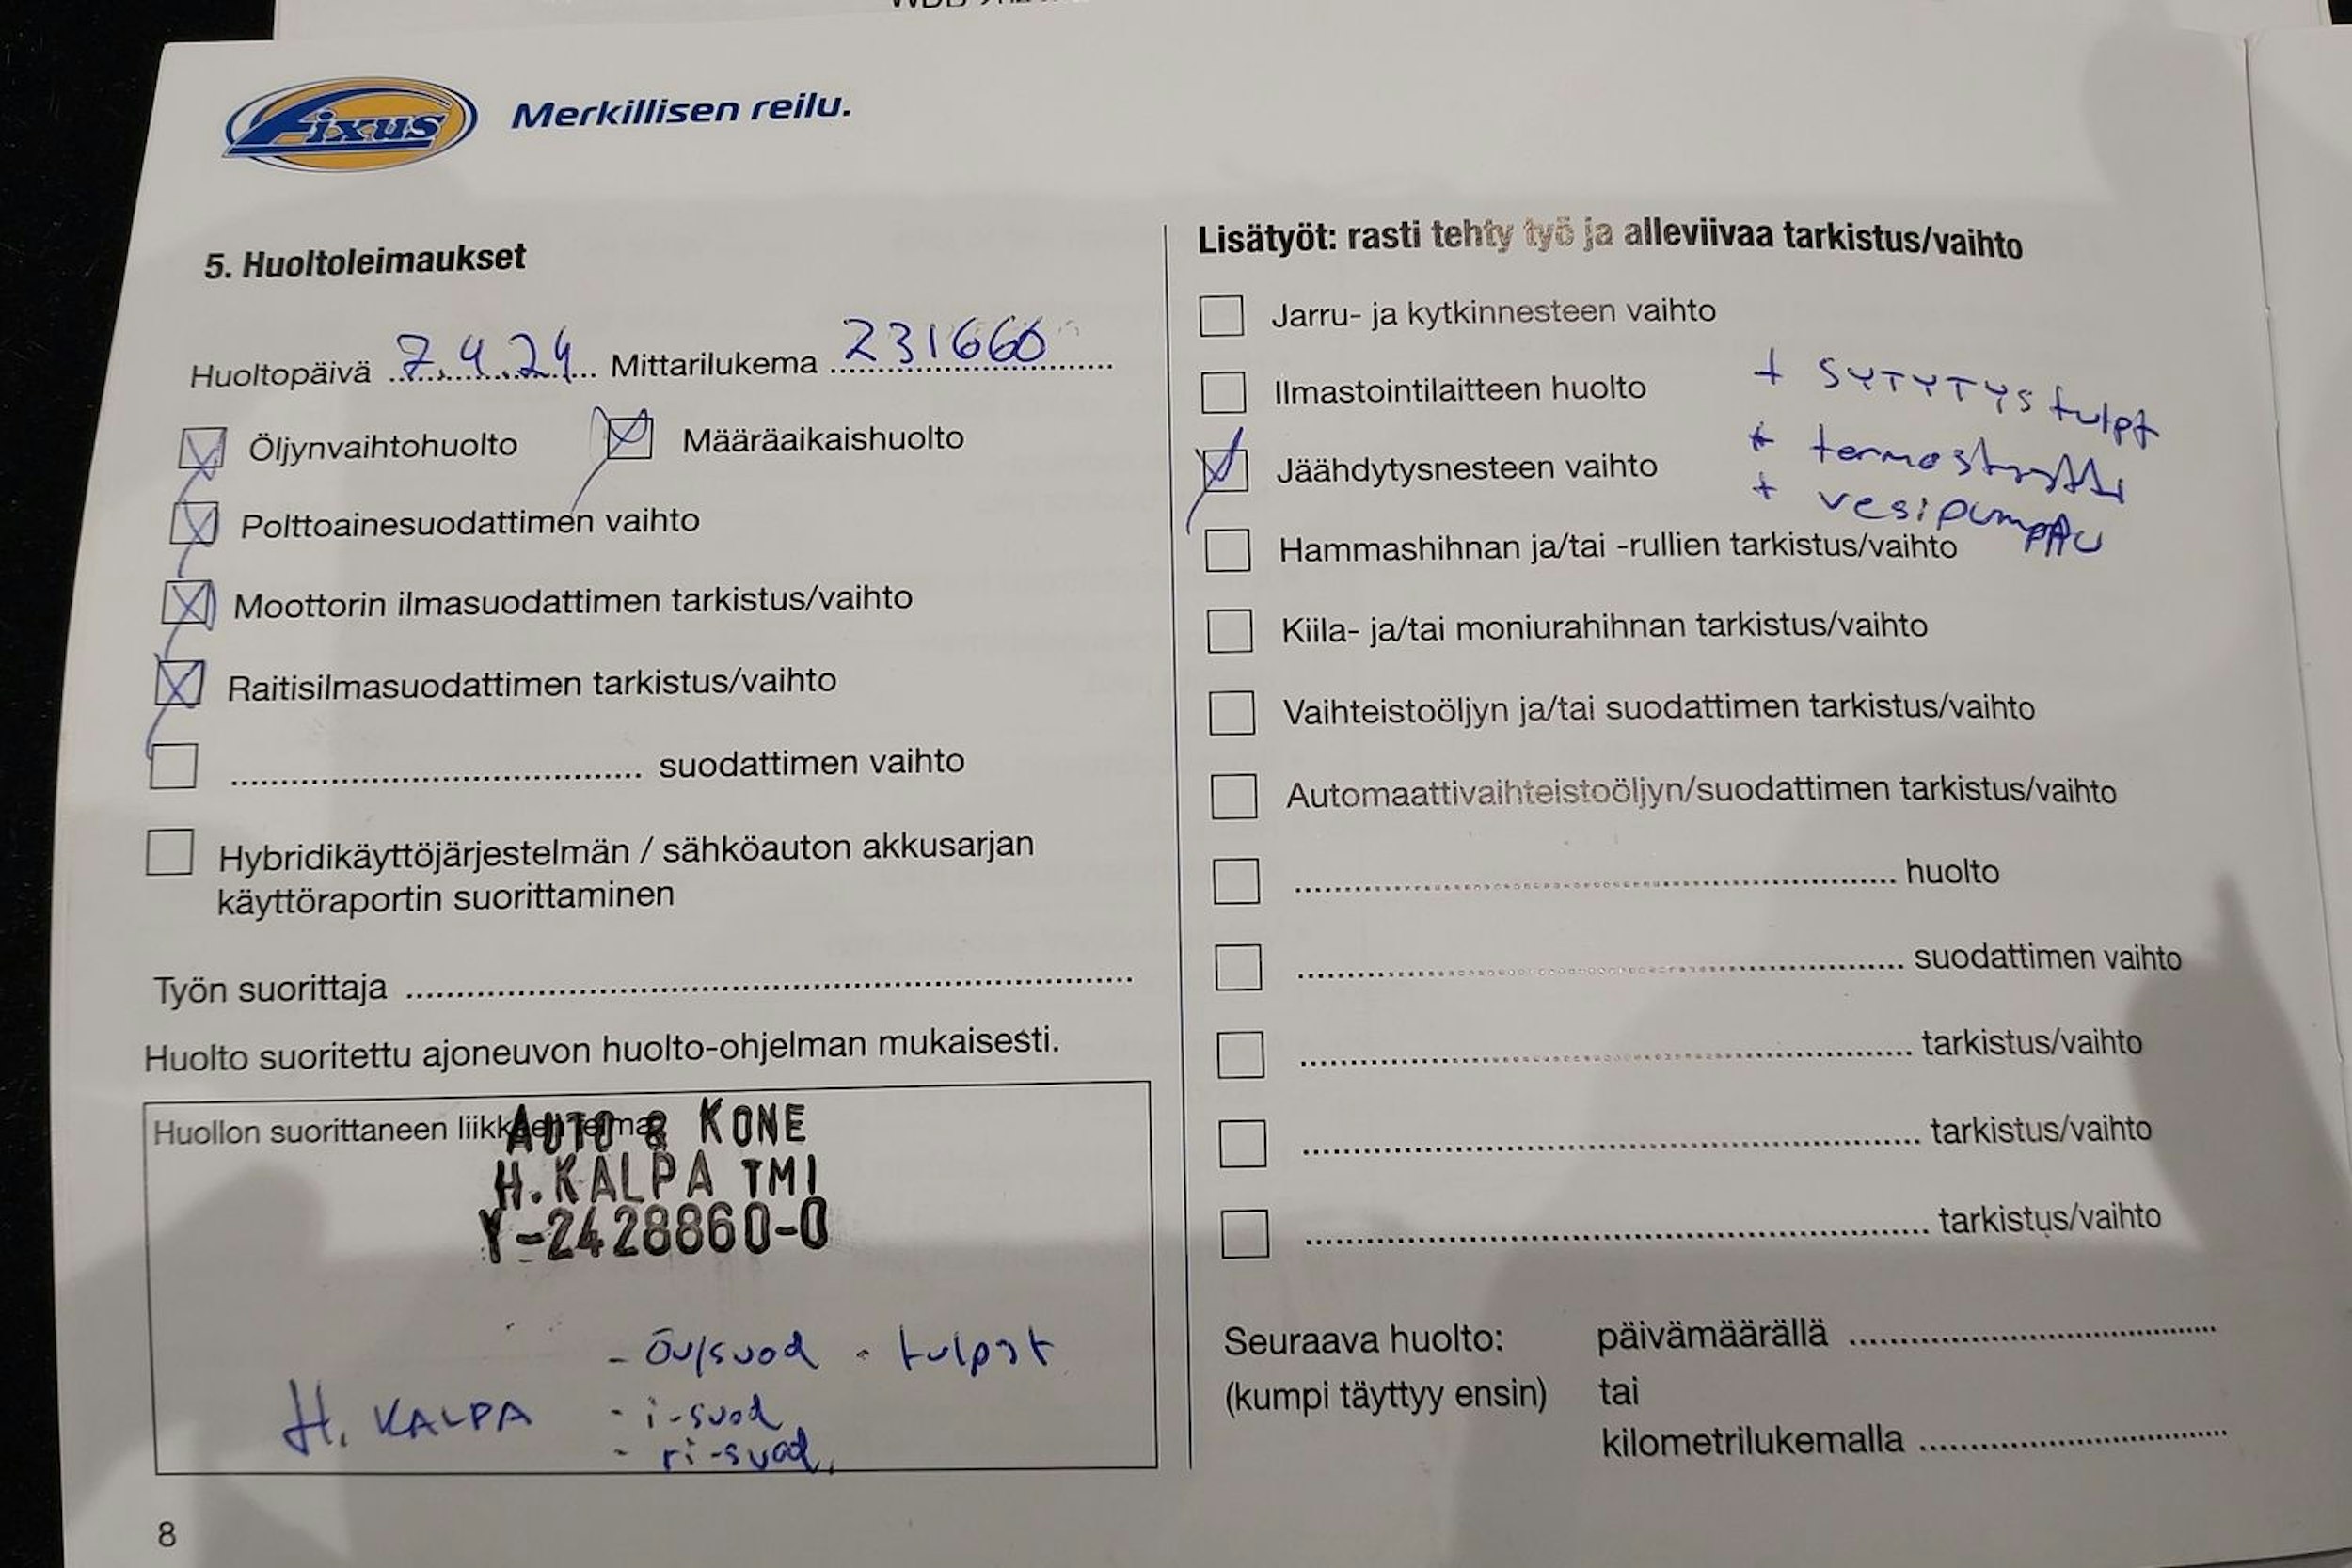 Fixus Merkillisen reilu.
5. Huoltoleimaukset
Huoltopäivä 7.4.24 Mittarilukema 231660
Öljynvaihtohuolto Määräaikaishuolto
Polttoainesuodattimen vaihto
Moottorin ilmasuodattimen tarkistus/vaihto
Raitisilmasuodattimen tarkistus/vaihto
suodattimen vaihto
Hybridikäyttöjärjestelmän / sähköauton akkusarjan
käyttöraportin suorittaminen
Työn suorittaja
Huolto suoritettu ajoneuvon huolto-ohjelman mukaisesti.
Huollon suorittaneen liikkeen leima
AUTO & KONE
H. KALPA TMI
Y-2428860-0
- öv/suod - tulpat
H. KALPA - i-suod
- ri-suod
8
Lisätyöt: rasti tehty työ ja alleviivaa tarkistus/vaihto
Jarru- ja kytkinnesteen vaihto
Ilmastointilaitteen huolto
+ SYTYTYStulpt
Jäähdytysnesteen vaihto
+ termostaatti
+ vesipumppu
Hammashihnan ja/tai -rullien tarkistus/vaihto
Kiila- ja/tai moniurahihnan tarkistus/vaihto
Vaihteistoöljyn ja/tai suodattimen tarkistus/vaihto
Automaattivaihteistoöljyn/suodattimen tarkistus/vaihto
huolto
suodattimen vaihto
tarkistus/vaihto
tarkistus/vaihto
tarkistus/vaihto
Seuraava huolto: päivämäärällä
(kumpi täyttyy ensin) tai
kilometrilukemalla